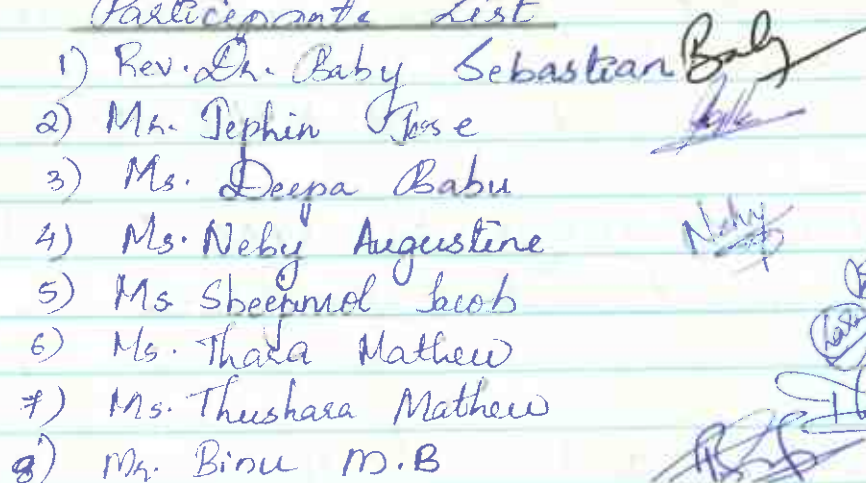 Participants List
1) Rev. Dr. Baby Sebastian Baby
2) Mr. Jephin Jose
3) Ms. Deepa Babu
4) Ms. Neby Augustine Neby
5) Ms Sheenmol Jacob
6) Ms. Thara Mathew
7) Ms. Thushara Mathew
8) Mr. Binu M.B